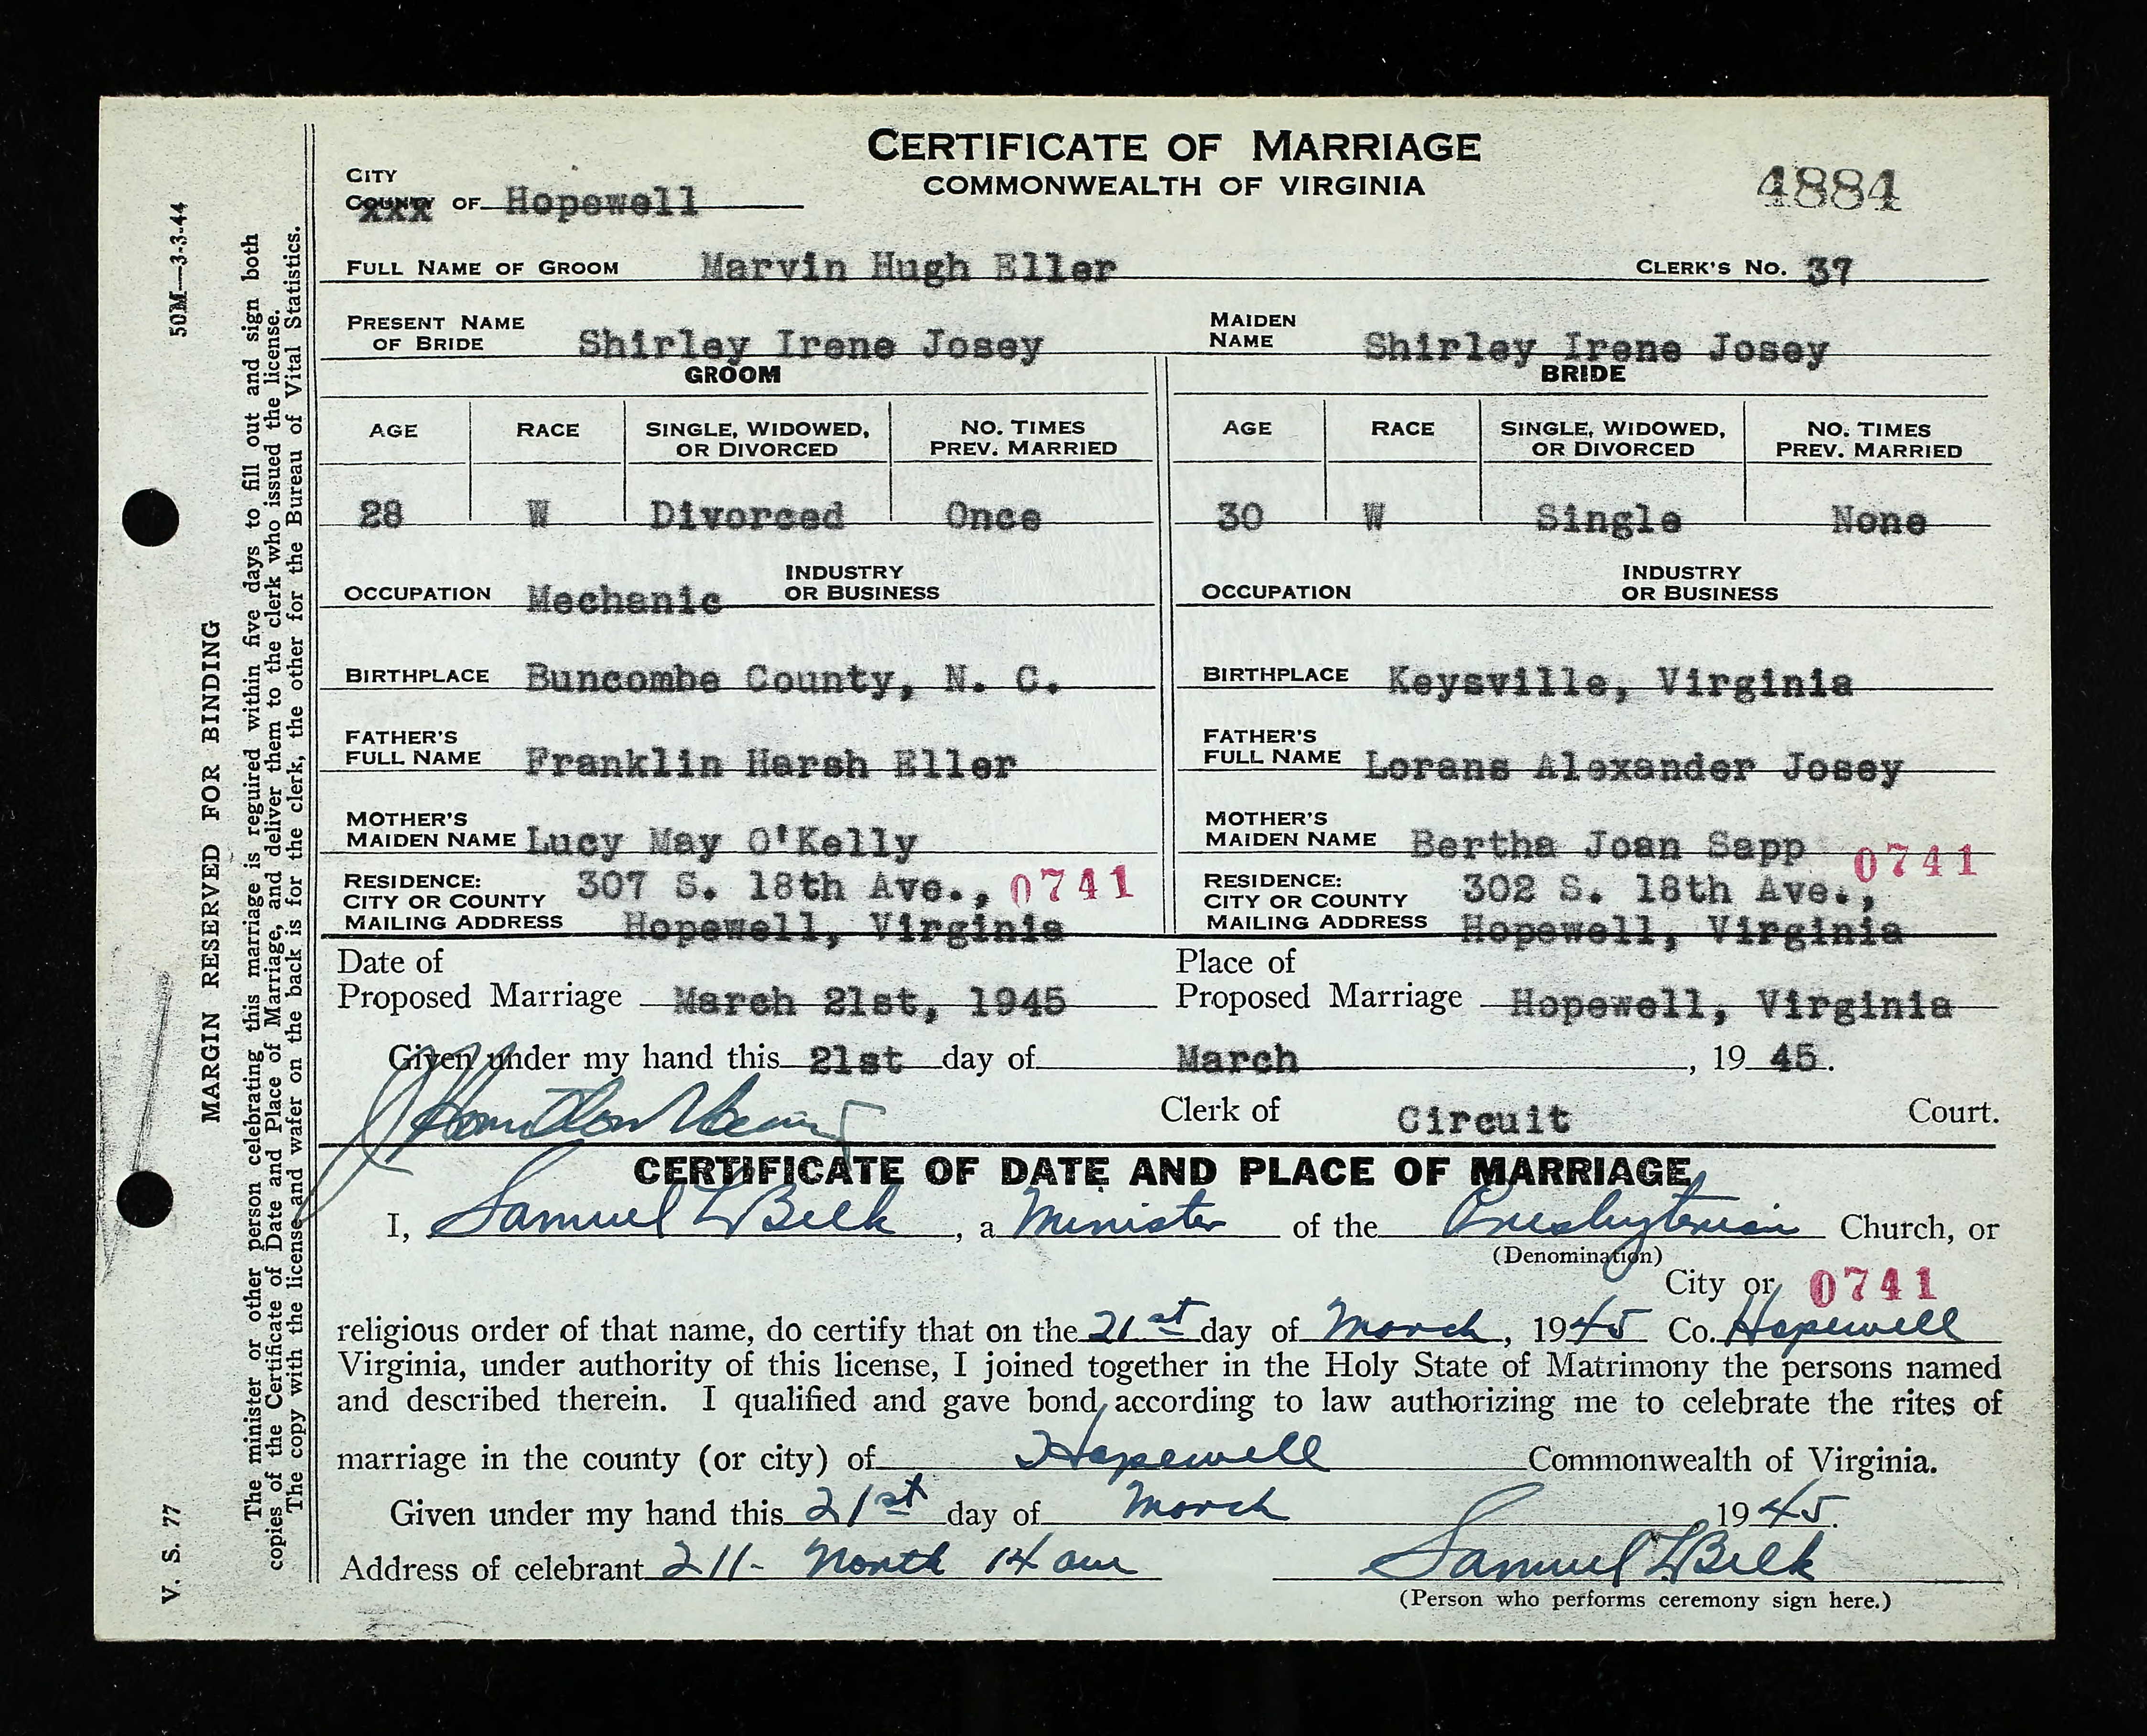 CERTIFICATE OF MARRIAGE
COMMONWEALTH OF VIRGINIA
4884
CITY
COUNTY OF Hopewell
FULL NAME OF GROOM Marvin Hugh Eller CLERK'S No. 37
PRESENT NAME OF BRIDE Shirley Irene Josey MAIDEN NAME Shirley Irene Josey
GROOM BRIDE
AGE RACE SINGLE, WIDOWED, OR DIVORCED NO. TIMES PREV. MARRIED AGE RACE SINGLE, WIDOWED, OR DIVORCED NO. TIMES PREV. MARRIED
28 W Divorced Once 30 W Single None
OCCUPATION Mechanic INDUSTRY OR BUSINESS OCCUPATION INDUSTRY OR BUSINESS
BIRTHPLACE Buncombe County, N. C. BIRTHPLACE Keysville, Virginia
FATHER'S FULL NAME Franklin Harsh Eller FATHER'S FULL NAME Lorans Alexander Josey
MOTHER'S MAIDEN NAME Lucy May O'Kelly MOTHER'S MAIDEN NAME Bertha Joan Sapp
RESIDENCE: CITY OR COUNTY 307 S. 18th Ave., 0741 RESIDENCE: CITY OR COUNTY 302 S. 18th Ave., 0741
MAILING ADDRESS Hopewell, Virginia MAILING ADDRESS Hopewell, Virginia
Date of Place of
Proposed Marriage March 21st, 1945 Proposed Marriage Hopewell, Virginia
Given under my hand this 21st day of March, 19 45.
Clerk of Circuit Court.
CERTIFICATE OF DATE AND PLACE OF MARRIAGE
I, Samuel L Belk, a Minister of the Presbyterian Church, or
(Denomination)
City or 0741
religious order of that name, do certify that on the 21st day of March, 1945 Co. Hopewell
Virginia, under authority of this license, I joined together in the Holy State of Matrimony the persons named
and described therein. I qualified and gave bond according to law authorizing me to celebrate the rites of
marriage in the county (or city) of Hopewell Commonwealth of Virginia.
Given under my hand this 21st day of March 1945.
Address of celebrant 211- North 14 ave Samuel L Belk
(Person who performs ceremony sign here.)
V. S. 77
50M—3-3-44
MARGIN RESERVED FOR BINDING
The minister or other person celebrating this marriage is required within five days to fill out and sign both
copies of the Certificate of Date and Place of Marriage, and deliver them to the clerk who issued the license.
The copy with the license and wafer on the back is for the clerk, the other for the Bureau of Vital Statistics.